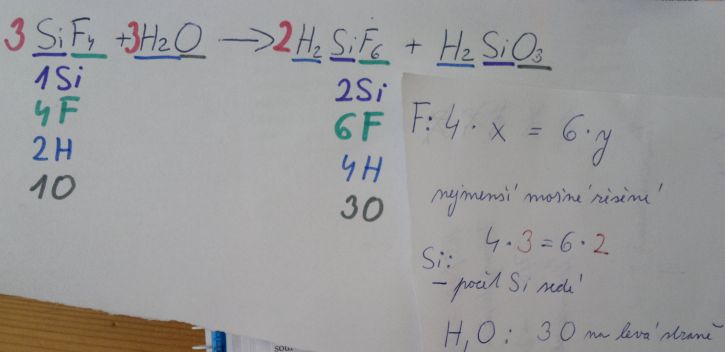 3 SiF4 + 3H2O → 2H2SiF6 + H2SiO3
1Si 2Si
4F 6F
2H 4H
1O 3O
F: 4 · x = 6 · y
nejmenší možné řešení
4 · 3 = 6 · 2
Si:
- počet Si sedí
H, O: 3 O na levé straně